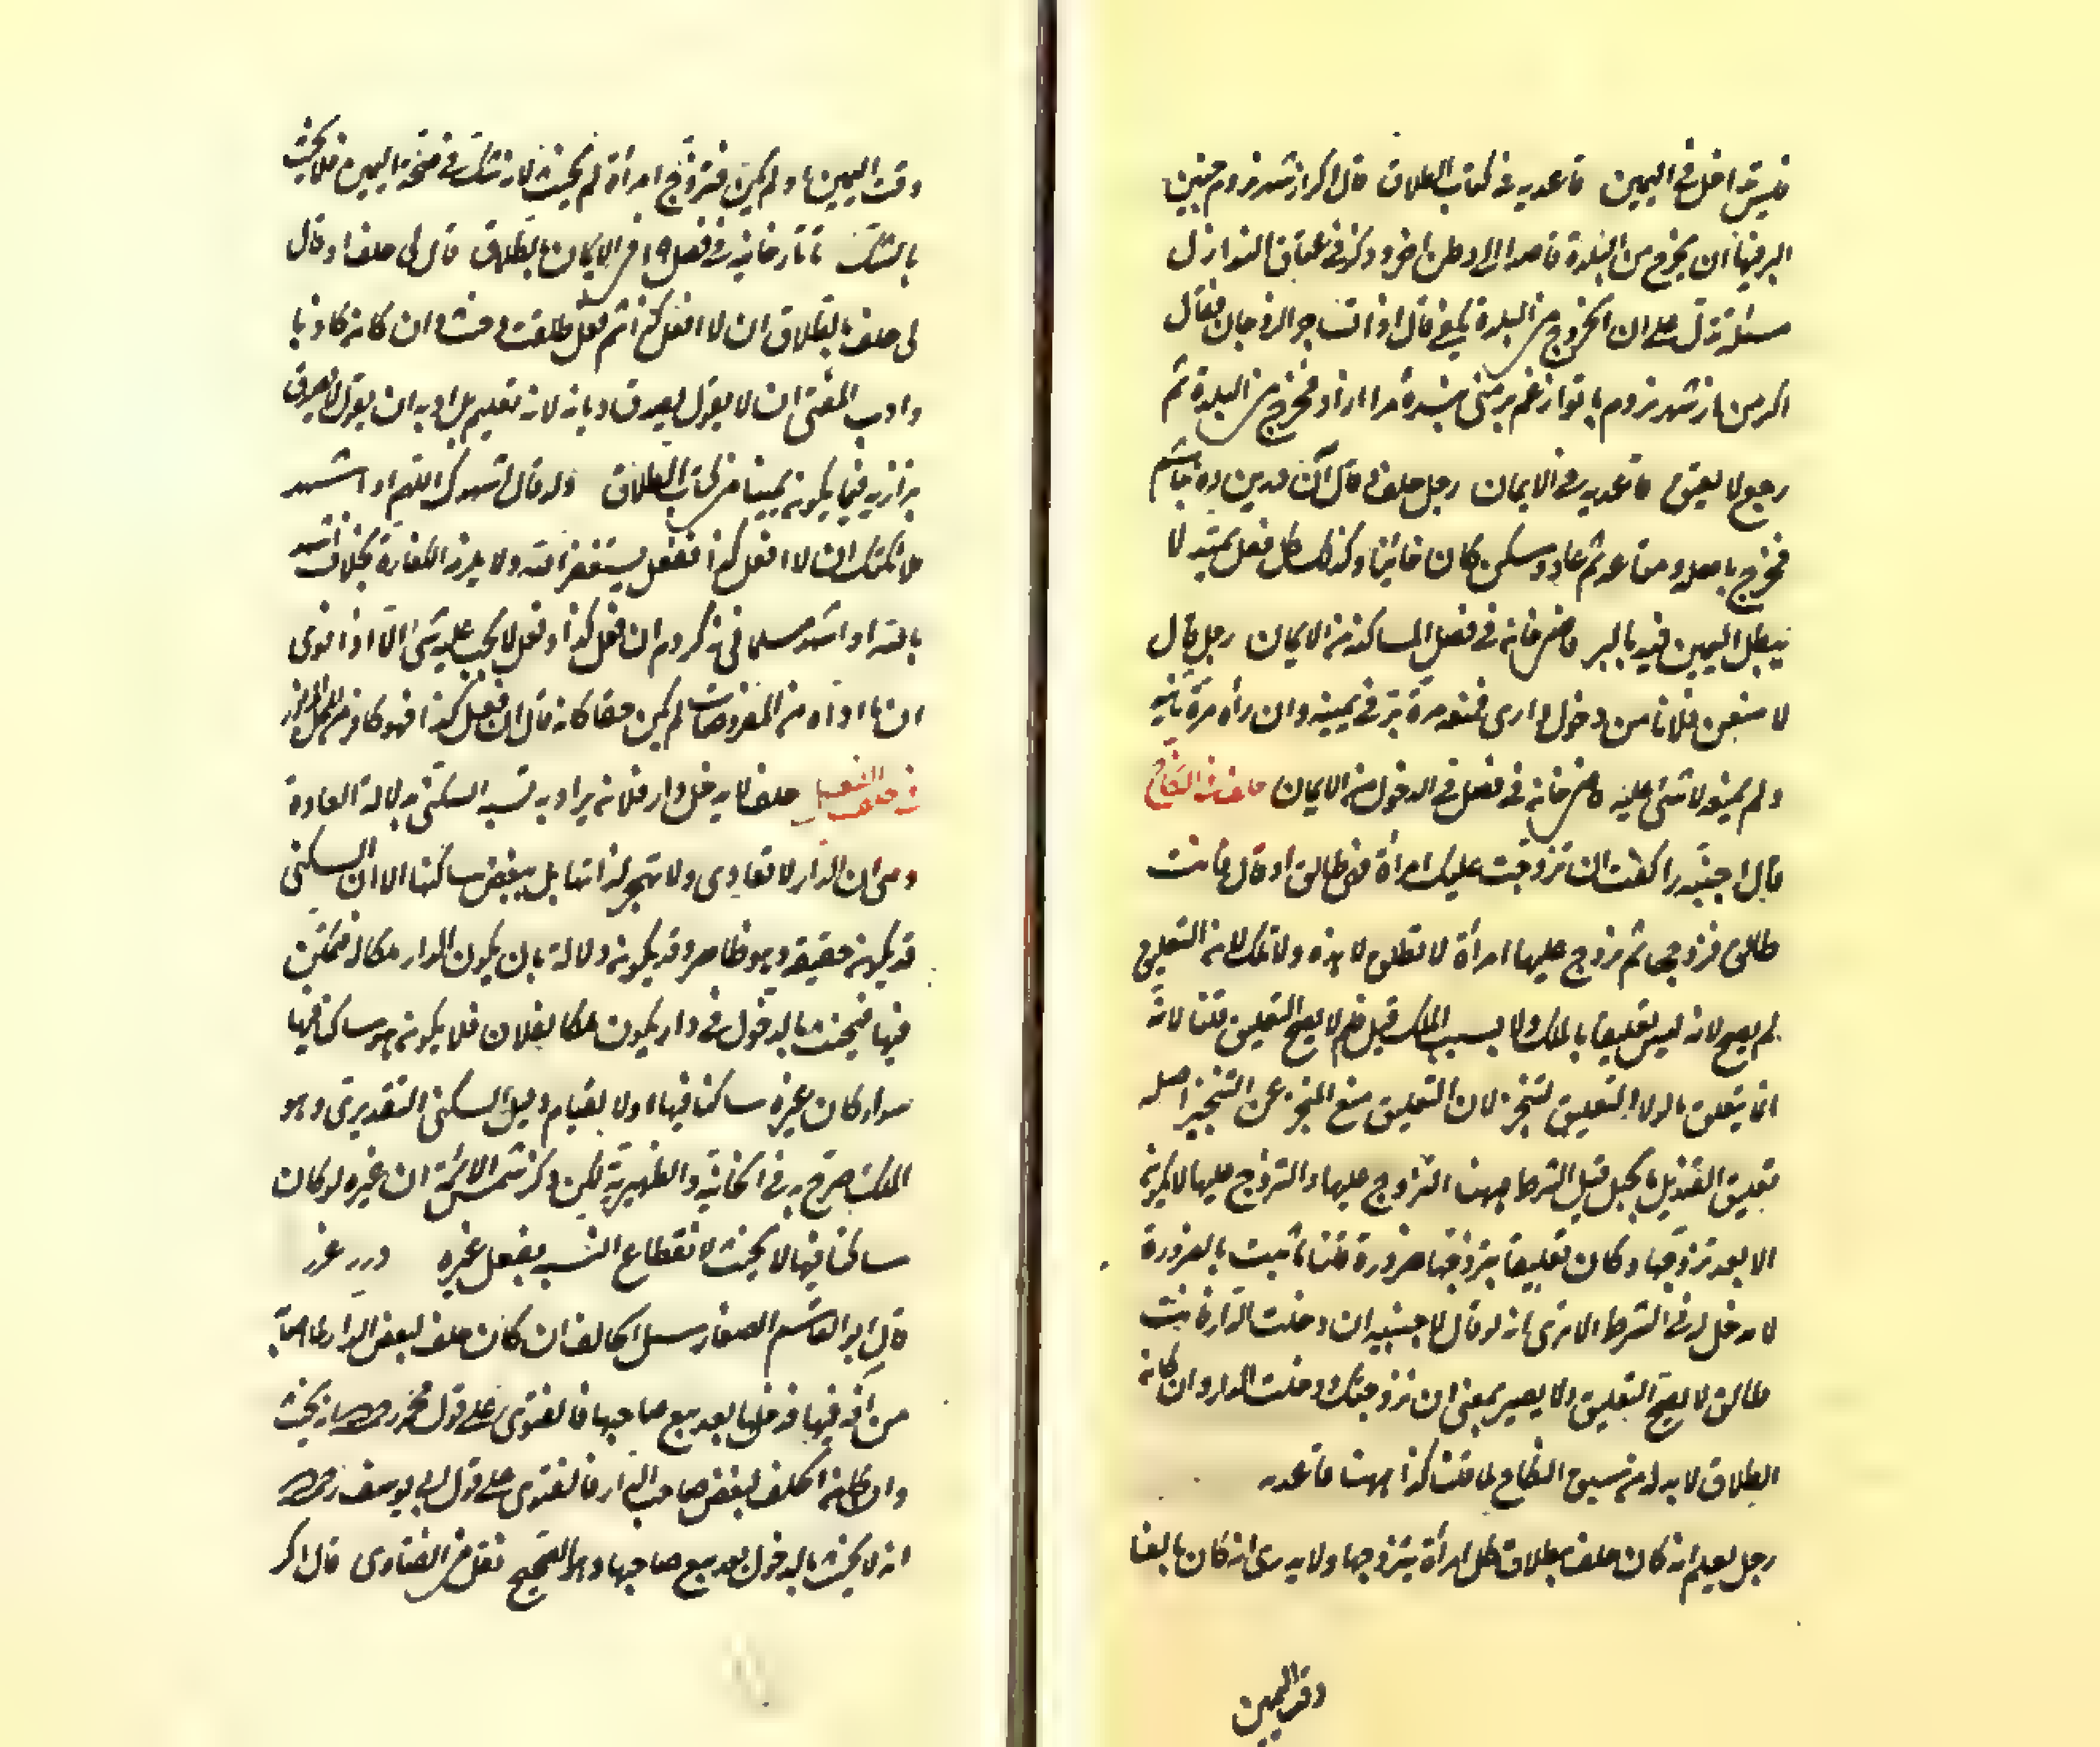 فليس بداخل في اليمين قاعديه من كتاب الطلاق قال اكر ازشهر نروم حنين
البر فيها ان يخرج من البلدة قاصدا الى وطن اخر وذكر في عتاق النوازل
مسئلة تدل على ان الخروج من البلدة يكفي قال اذا تشاجر الزوجان فقال
اكر من از شهر نروم باتو از غم برمنى بنده مرا ازاد فخرج من البلدة ثم
رجع لا يعتق قاعديه في الايمان رجل حلف وقال اكر من درين ده باشم
فخرج باهله ومتاعه ثم عاد وسكن كان حانثا وكذلك كل فعل يمتد لا
يبطل اليمين فيه بالبر قاضيخانه في فصل المساكنة من الايمان رجل قال
لا منعن فلانا من دخول دارى فمنعه مرة بر في يمينه وان رأه مرة ثانية
ولم يمنعه لا شئ عليه قاضيخانه في فصل في الدخول من الايمان حلف في النكاح
قال اجنبيه را كفت ان تزوجت عليك امرأة فهى طالق او قال فانت
طالق فتزوجها ثم تزوج عليها امرأة لا تطلق لا هذه ولا تلك لانه التعليق
لم يصح لانه ليس تعليقا بالملك ولا بسبب الملك قيل فلم لا يصح التعليق قلنا لانه
انما يتعلق مالولا التعليق لتنجز لان التعليق منع المنجز عن التنجيز اصله
تعليق القنديل بالحبل قيل الشرط ههنا التزوج عليها والتزوج عليها لا يكون
الا بعد تزوجها وكان تعليقا بتزوجها ضرورة قلنا ما ثبت بالضرورة
لا مدخل له في الشرط الا ترى انه لو قال لاجنبيه ان دخلت الدار فانت
طالق لا يصح التعليق ولا يصير بمعنى ان تزوجتك ودخلت الدار وان كانه
الطلاق لا بد له من سبق النكاح لما قلنا كذا ههنا قاعديه
رجل يعلم انه كان حلف بطلاق كل امرأة يتزوجها ولا يدرى انه كان بالغا
وقت اليمين
وقت اليمين او لم يكن فتزوج امرأة لم يحنث لانه شك في صحة اليمين فلا يحنث
بالشك تاتارخانيه في فصل ١٩ من الايمان بالطلاق قال لى حلف او قال
لى حلف بالطلاق ان لا افعل كذا ثم فعل طلقت وحنث وان كانه كاذبا
وادب المفتى ان لا يقول يصدق ديانه لانه تعليم بل ادبه ان يقول لا يصدق
بزازيه فيما يكون يمينا من كتاب الطلاق ولو قال اشهدك اللهم او اشهد
ملائكتك ان لا افعل كذا ففعل يستغفر الله ولا يلزمه الكفارة بخلاف اشهد
بالله او اشهد مسلمانى نه كردم ان فعل كذا وفعل لا يجب عليه شئ الا اذا نوى
ان ما اداه من المفروضات لم يكن حقا كانه قال ان فعل كذا فهو كافر من المحل المزبور
حلف لا يدخل دار فلانه يراد به نسبة السكنى بدلالة العادة
وهى ان الدار لا تعادى ولا تهجر لذاتها بل لبغض ساكنها الا ان السكنى
قد يكون حقيقة وهو ظاهر وقد يكون دلالة بان يكون الدار ملكا له فيتمكن
فيها فيحنث بالدخول في دار يكون ملكا لفلان فلا يكون هو ساكنا فيها
سواء كان غيره ساكنا فيها اولا لقيام دليل السكنى التقديرى وهو
الملك صرح به في الخانية والظهيرية لكن ذكر شمس الائمة ان غيره لو كان
ساكنا فيها لا يحنث لانقطاع النسبه بفعل غيره درر غرر
قال ابو القاسم الصفار سئل الحالف ان كان حلف لبغض الدار لما اصابه
من آفة فيها فدخلها بعد بيع صاحبها فالفتوى على قول محمد رحمه الله انه يحنث
وان كانه الحلف لبغض صاحب الدار فالفتوى على قول ابى يوسف رحمه الله
انه لا يحنث بالدخول بعد بيع صاحبها وهو الصحيح نقل من الفتاوى قال اكر